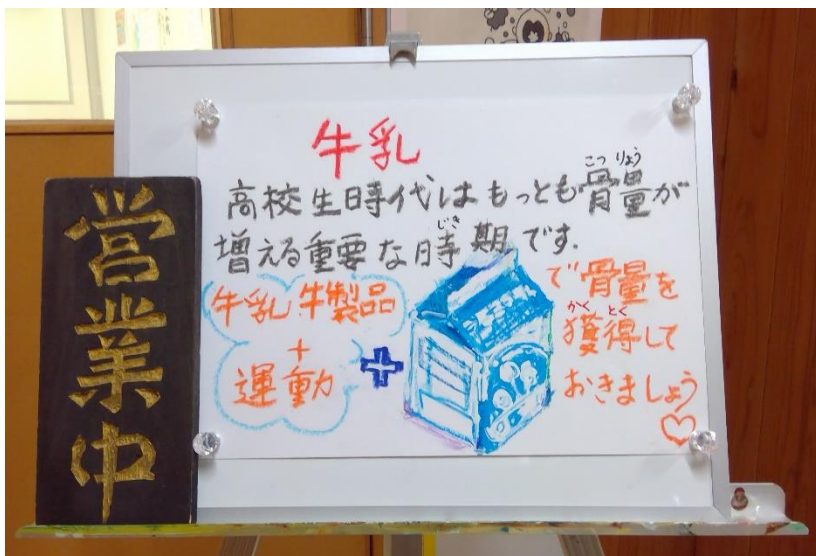 営業中
牛乳
高校生時代はもっとも骨量が
こつりょう
増える重要な時期です.
じき
牛乳 牛製品
+
運動
+
で骨量を
獲得して
かくとく
おきましょう
♡